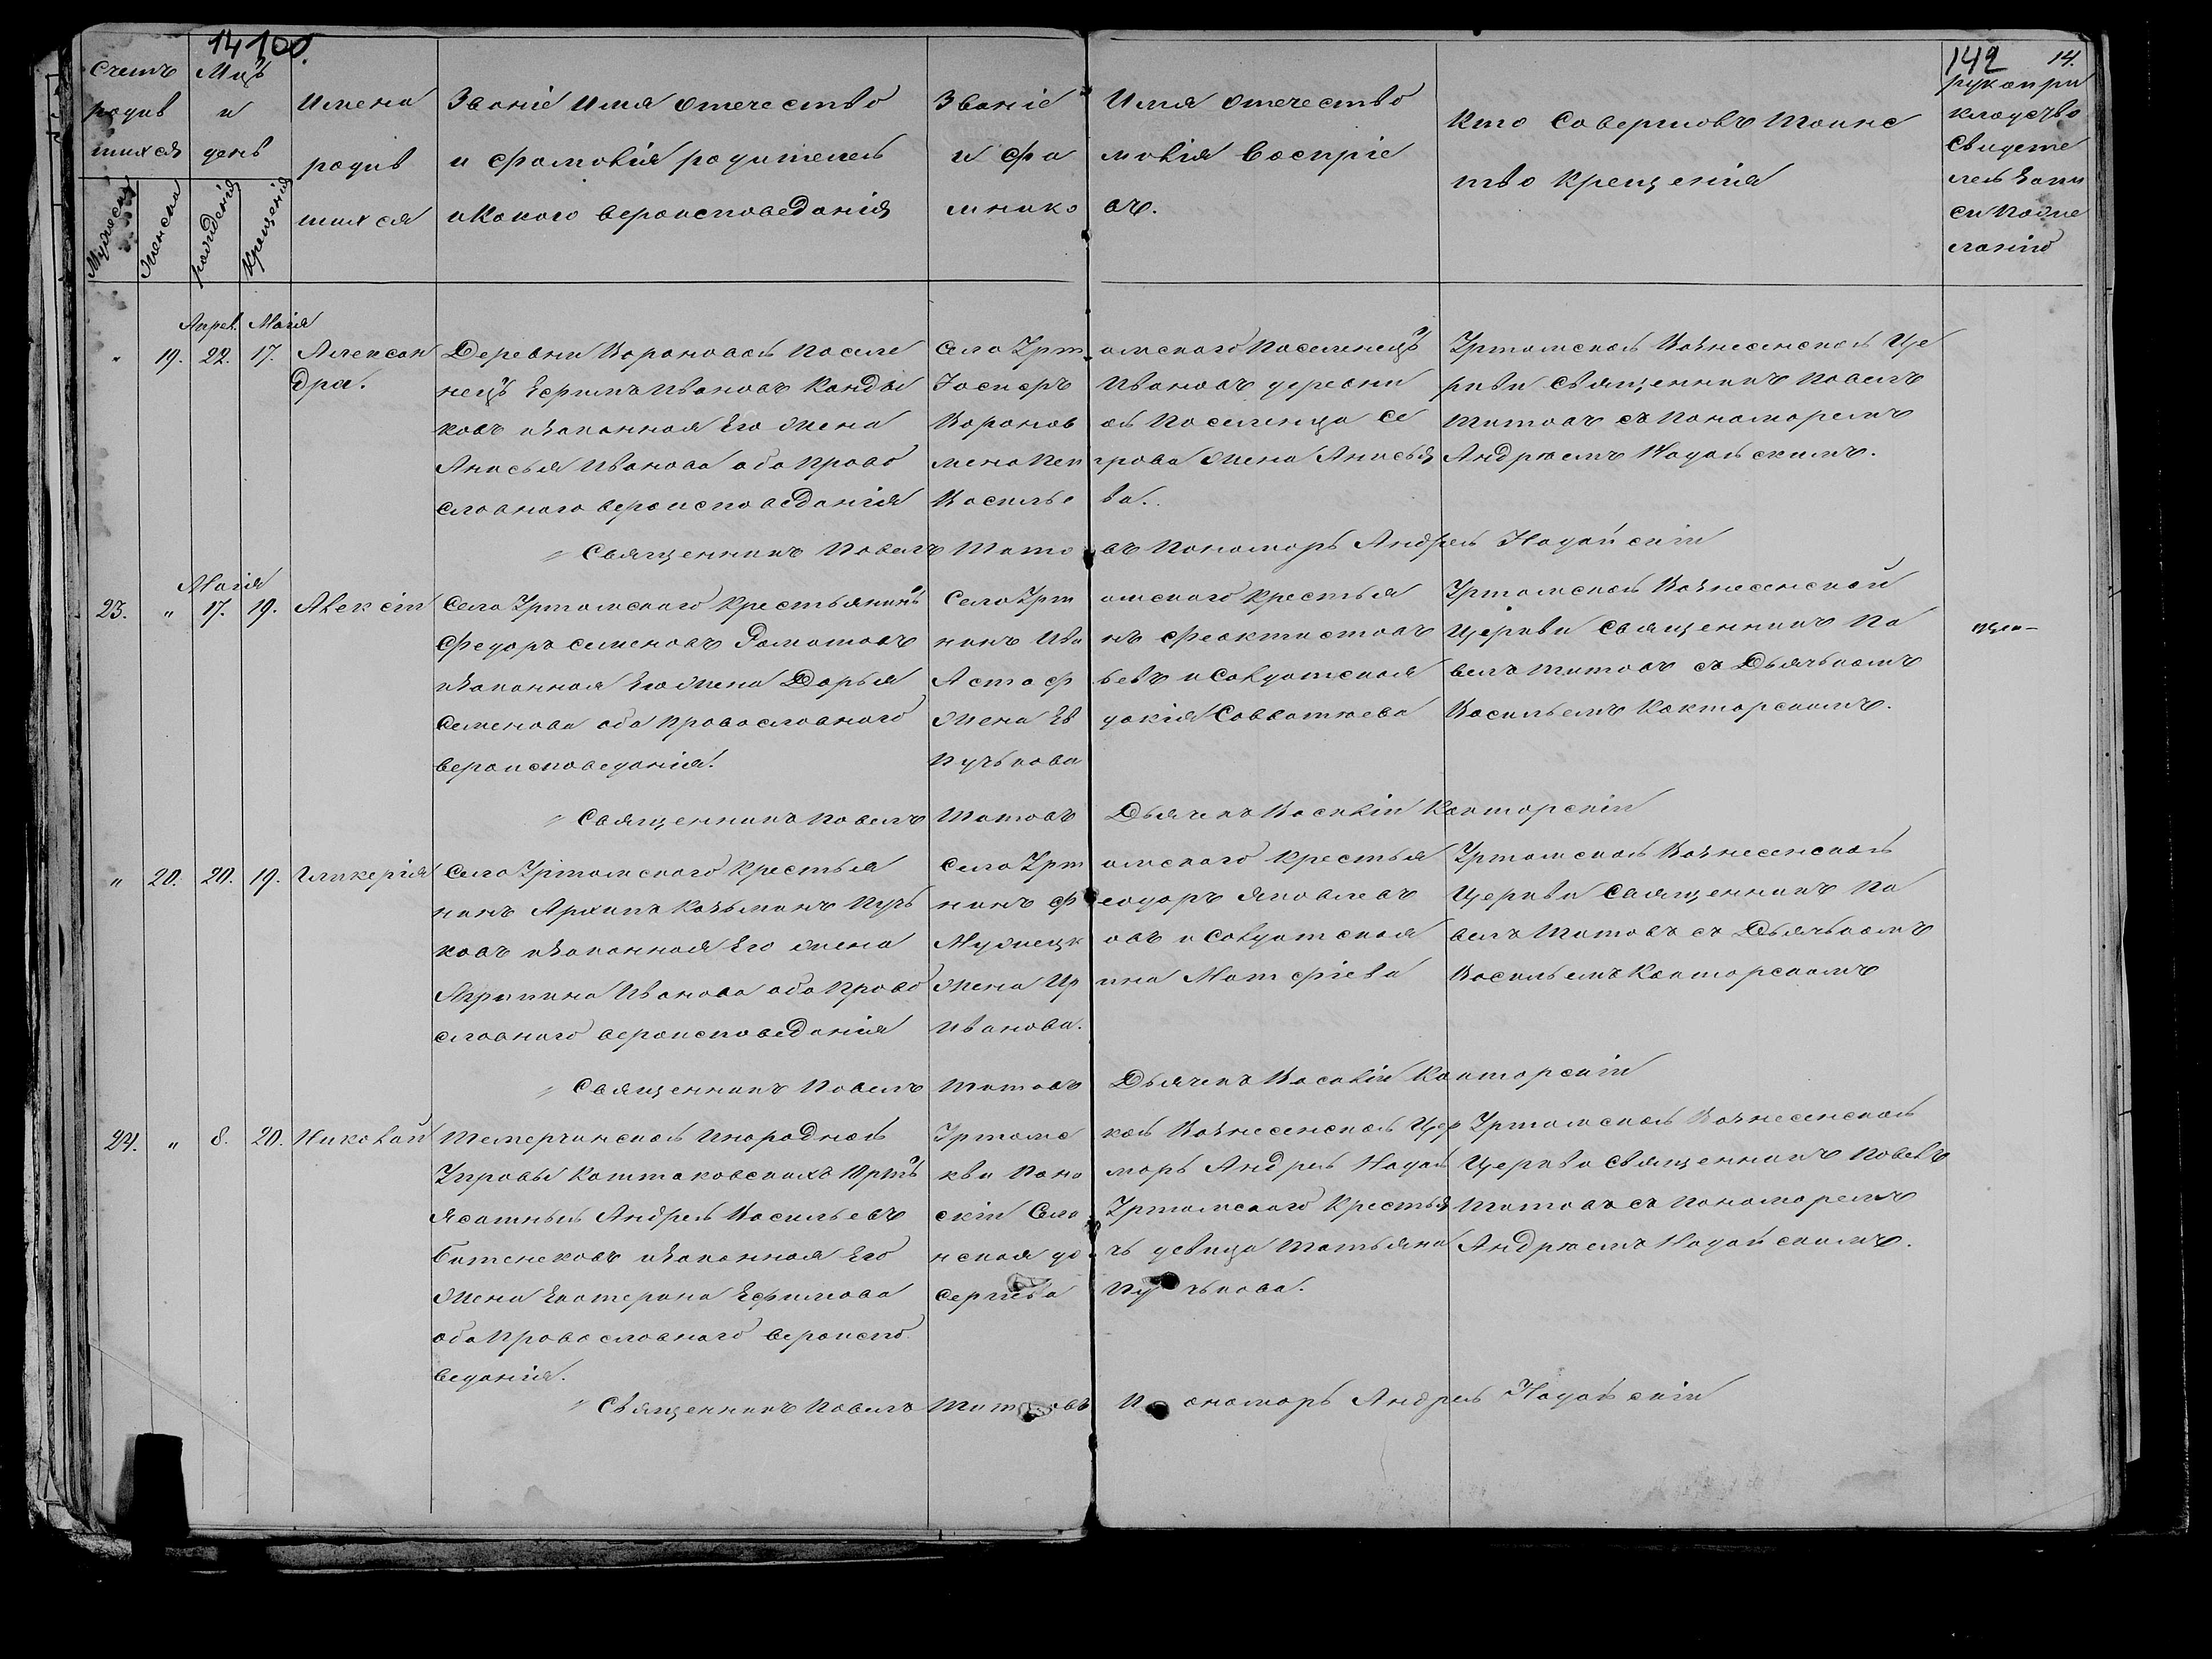 14 100.
142 14.
Счетъ родив шихся
Мужеска
Женска
Мцъ и день
рожденія
Крещенія
Имена родив шихся
Званіе Имя Отечество
и Фамилія родителей
и Какого вероисповеданія
Званіе Имя Отечество
и Фа милія Воспріе
мнико въ.
Кто Совершалъ Таинс
тво Крещенія
рукопри
кладство
Свидете
лей Запи
си По же
ланію
Апрел. Маія
" 19. 22. 17. Алексан
дра.
Деревни Вороновой Поселе
нецъ Ефимъ Ивановъ Канды
ковъ и Законная Его Жена
Анисья Иванова оба Право
славного вероисповеданія
Села Урт амского Поселенецъ
Іосифъ Ивановъ деревни
Воронов ой Поселенца Се
мена Пет рова Жена Анисья
Василье ва.
Уртамской Вознесенской Це
ркви Священникъ Павелъ
Титовъ съ Пономаремъ
Андреемъ Надайскимъ.
Священникъ Павелъ Тито въ Пономарь Андрей Надайскій
Маія
23. " 17. 19. Алексій
Села Уртамского Крестьянинъ
Федоръ Семеновъ
и Законная Его Жена Дарья
Семенова оба Православного
вероисповеданія.
Села Урт амского Крестья
нинъ Ива нъ Феоктистовъ
Астаф ьевъ и Солдатская
Жена Ев докія Савватеева
Пучькова
Уртамской Вознесенской
Церкви Священникъ Па
велъ Титовъ съ Дьячькомъ
Васильемъ Конторскимъ.
Священникъ Павелъ Титовъ Дьячекъ Василій Конторскій
" 20. 20. 19. Гликерія
Села Уртамского Крестья
нинъ Архипъ Козьминъ Пучь
ковъ и Законная Его Жена
Агрипина Иванова оба Право
славного вероисповеданія
Села Урт амского Крестья
нинъ Ф едоръ Яковлевъ
Мужецк овъ и Солдатская
Жена Ир ина Матфіева
Иванова.
Уртамской Вознесенской
Церкви Священникъ Па
велъ Титовъ съ Дьячькомъ
Васильемъ Конторскимъ
Священникъ Павелъ Титовъ Дьячекъ Василій Конторскій
24. " 8. 20. Николай
Темерчинской Инородной
Управы Коштаковскихъ Юртъ
Ясашный Андрей Васильевъ
Битенековъ и Законная Его
Жена Екатерина Ефимова
оба Православного вероиспо
веданія.
Уртамс кой Вознесенской Цер
кви Поно марь Андрей Надай
скій Села Уртамского Крестья
нская до чь девица Татьяна
Сергиева Пу чькова.
Уртамской Вознесенской
Церкви Священникъ Павелъ
Титовъ съ Пономаремъ
Андреемъ Надайскимъ.
Священникъ Павелъ Титовъ Пономарь Андрей Надайскій